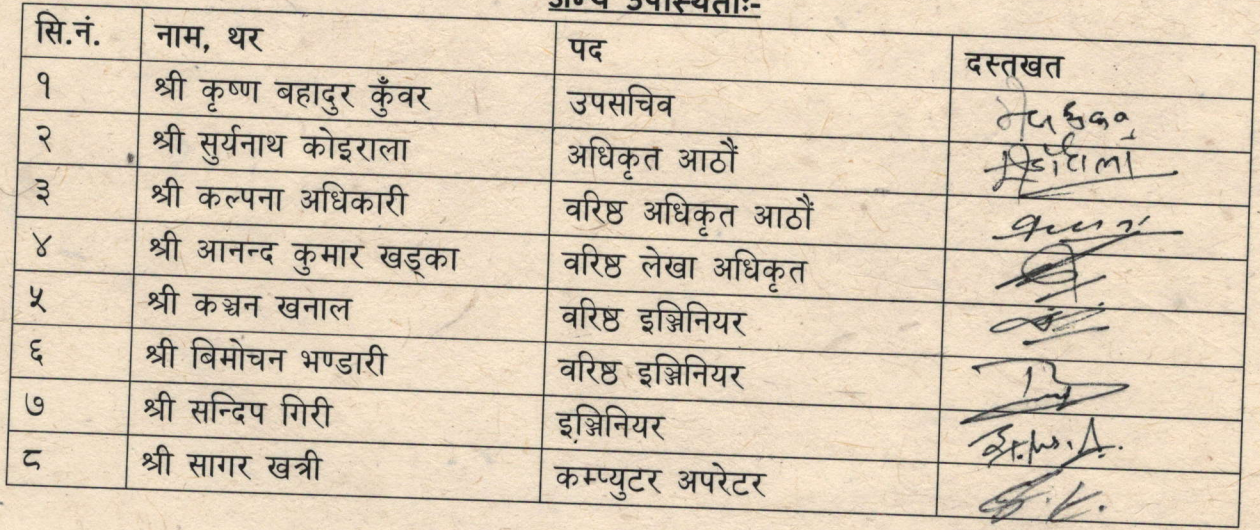 अन्य उपस्थिताः-
सि.नं. नाम, थर पद दस्तखत
१ श्री कृष्ण बहादुर कुँवर उपसचिव
२ श्री सुर्यनाथ कोइराला अधिकृत आठौं
३ श्री कल्पना अधिकारी वरिष्ठ अधिकृत आठौं
४ श्री आनन्द कुमार खड्का वरिष्ठ लेखा अधिकृत
५ श्री कञ्चन खनाल वरिष्ठ इञ्जिनियर
६ श्री बिमोचन भण्डारी वरिष्ठ इञ्जिनियर
७ श्री सन्दिप गिरी इञ्जिनियर
८ श्री सागर खत्री कम्प्युटर अपरेटर